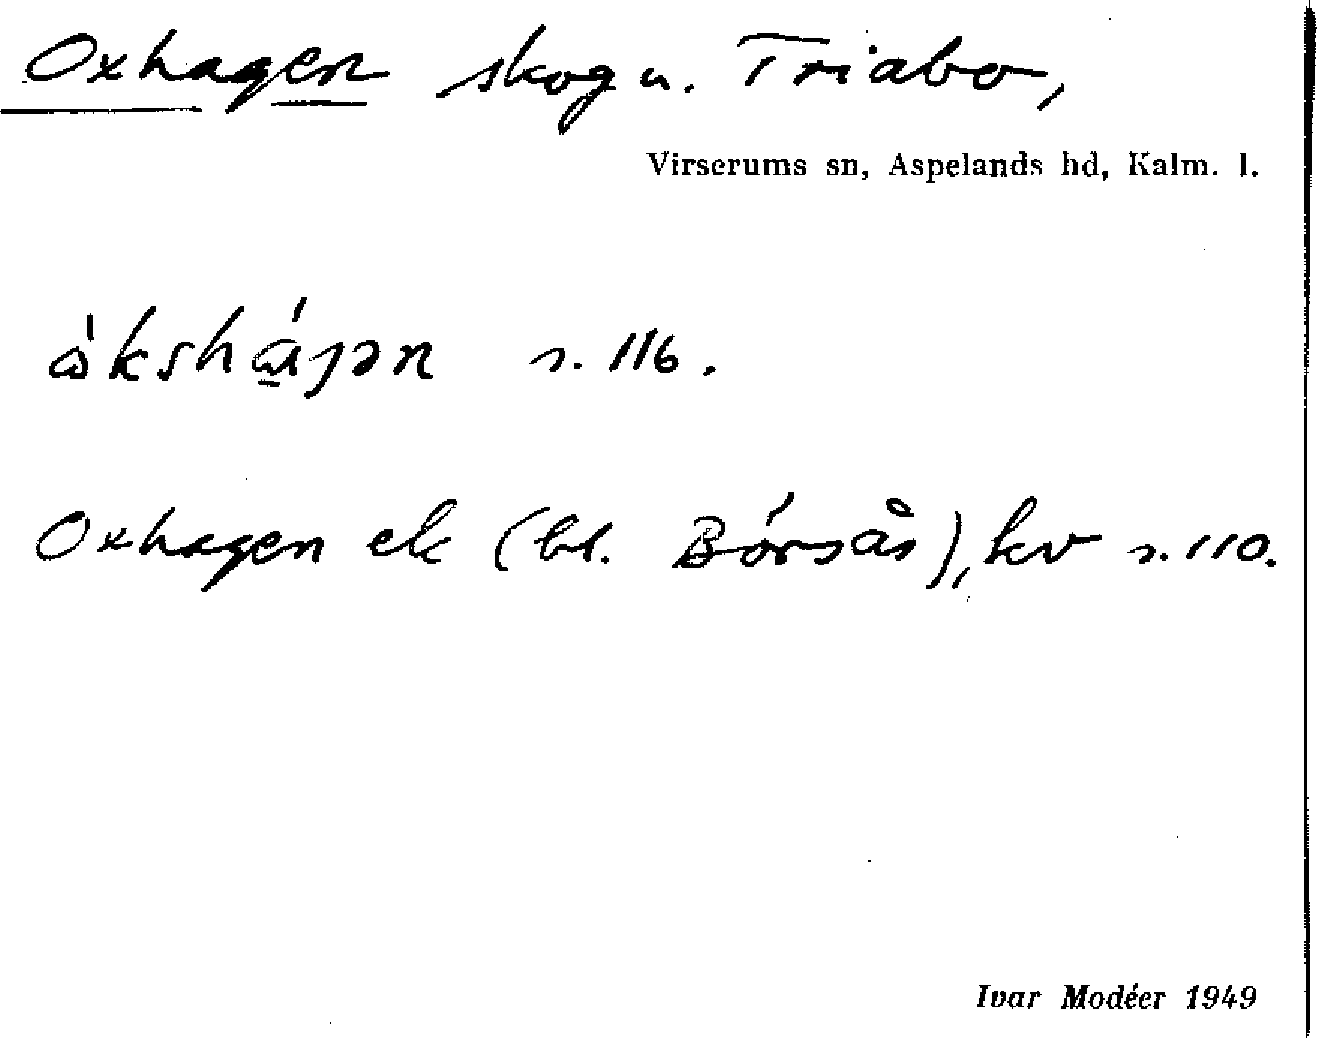 Oxhagen skog u. Triabo,
Virserums sn, Aspelands hd, Kalm. l.
s. 116.
Oxhagen ek (bl. Börsås), kv s. 110.
Ivar Modéer 1949